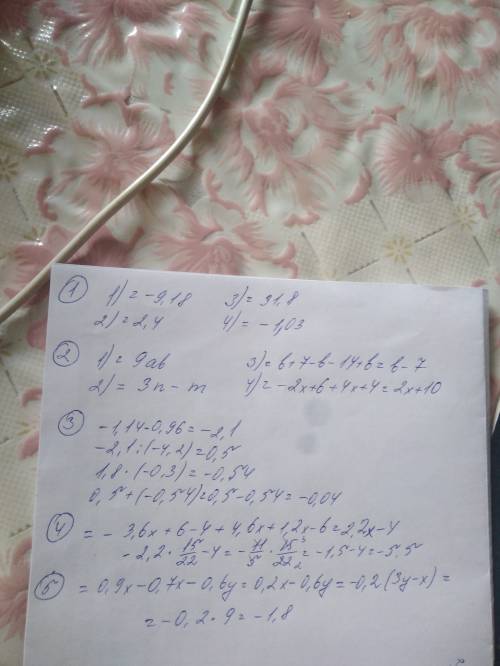 1 1) = -9,18 3) = 31,8
2) = 2,4 4) = -1,03
2 1) = 9ab 3) = b+7-b-14+b=b-7
2) = 3n-m 4) = -2x+6+4x+4=2x+10
3 -1,14-0,96=-2,1
-2,1:(-4,2)=0,5
1,8·(-0,3)=-0,54
0,5+(-0,54)=0,5-0,54=-0,04
4 = -3,6x+6-4+4,6x+1,2x-6=2,2x-4
-2,2·15/22-4=-11/5·15³/22₂=-1,5-4=-5,5
5 = 0,9x-0,7x-0,6y=0,2x-0,6y=-0,2(3y-x)=
= -0,2·9=-1,8